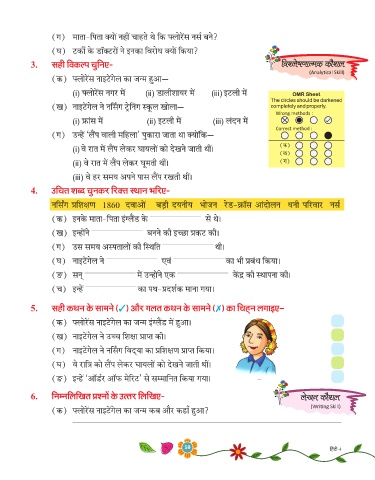 (ग) माता-पिता क्यों नहीं चाहते थे कि फ्लोरेंस नर्स बने?
(घ) टर्की के डॉक्टरों ने इनका विरोध क्यों किया?
विश्लेषणात्मक कौशल
(Analytical Skill)
3. सही विकल्प चुनिए-
(क) फ्लोरेंस नाइटेंगेल का जन्म हुआ—
(i) फ्लोरेंस नगर में (ii) डालीशायर में (iii) इटली में
(ख) नाइटेंगेल ने नर्सिंग ट्रेनिंग स्कूल खोला—
(i) फ्रांस में (ii) इटली में (iii) लंदन में
(ग) उन्हें 'लैंप वाली महिला' पुकारा जाता था क्योंकि—
(i) वे रात में लैंप लेकर घायलों को देखने जाती थीं।
(ii) वे रात में लैंप लेकर घूमती थीं।
(iii) वे हर समय अपने पास लैंप रखती थीं।
OMR Sheet
The circles should be darkened
completely and properly.
Wrong methods :
Correct method :
(क)
(ख)
(ग)
4. उचित शब्द चुनकर रिक्त स्थान भरिए-
नर्सिंग प्रशिक्षण 1860 दवाओं बड़ी दयनीय भोजन रेड-क्रॉस आंदोलन धनी परिवार नर्स
(क) इनके माता-पिता इंग्लैंड के से थे।
(ख) इन्होंने बनने की इच्छा प्रकट की।
(ग) उस समय अस्पतालों की स्थिति थी।
(घ) नाइटेंगेल ने एवं का भी प्रबंध किया।
(ङ) सन् में उन्होंने एक केंद्र की स्थापना की।
(च) इन्हें का पथ-प्रदर्शक माना गया।
5. सही कथन के सामने (✓) और गलत कथन के सामने (✗) का चिह्न लगाइए–
(क) फ्लोरेंस नाइटेंगेल का जन्म इंग्लैंड में हुआ।
(ख) नाइटेंगेल ने उच्च शिक्षा प्राप्त की।
(ग) नाइटेंगेल ने नर्सिंग विद्या का प्रशिक्षण प्राप्त किया।
(घ) वे रात्रि को लैंप लेकर घायलों को देखने जाती थीं।
(ङ) इन्हें 'ऑर्डर ऑफ मेरिट' से सम्मानित किया गया।
6. निम्नलिखित प्रश्नों के उत्तर लिखिए-
(क) फ्लोरेंस नाइटेंगेल का जन्म कब और कहाँ हुआ?
लेखन कौशल
(Writing Skill)